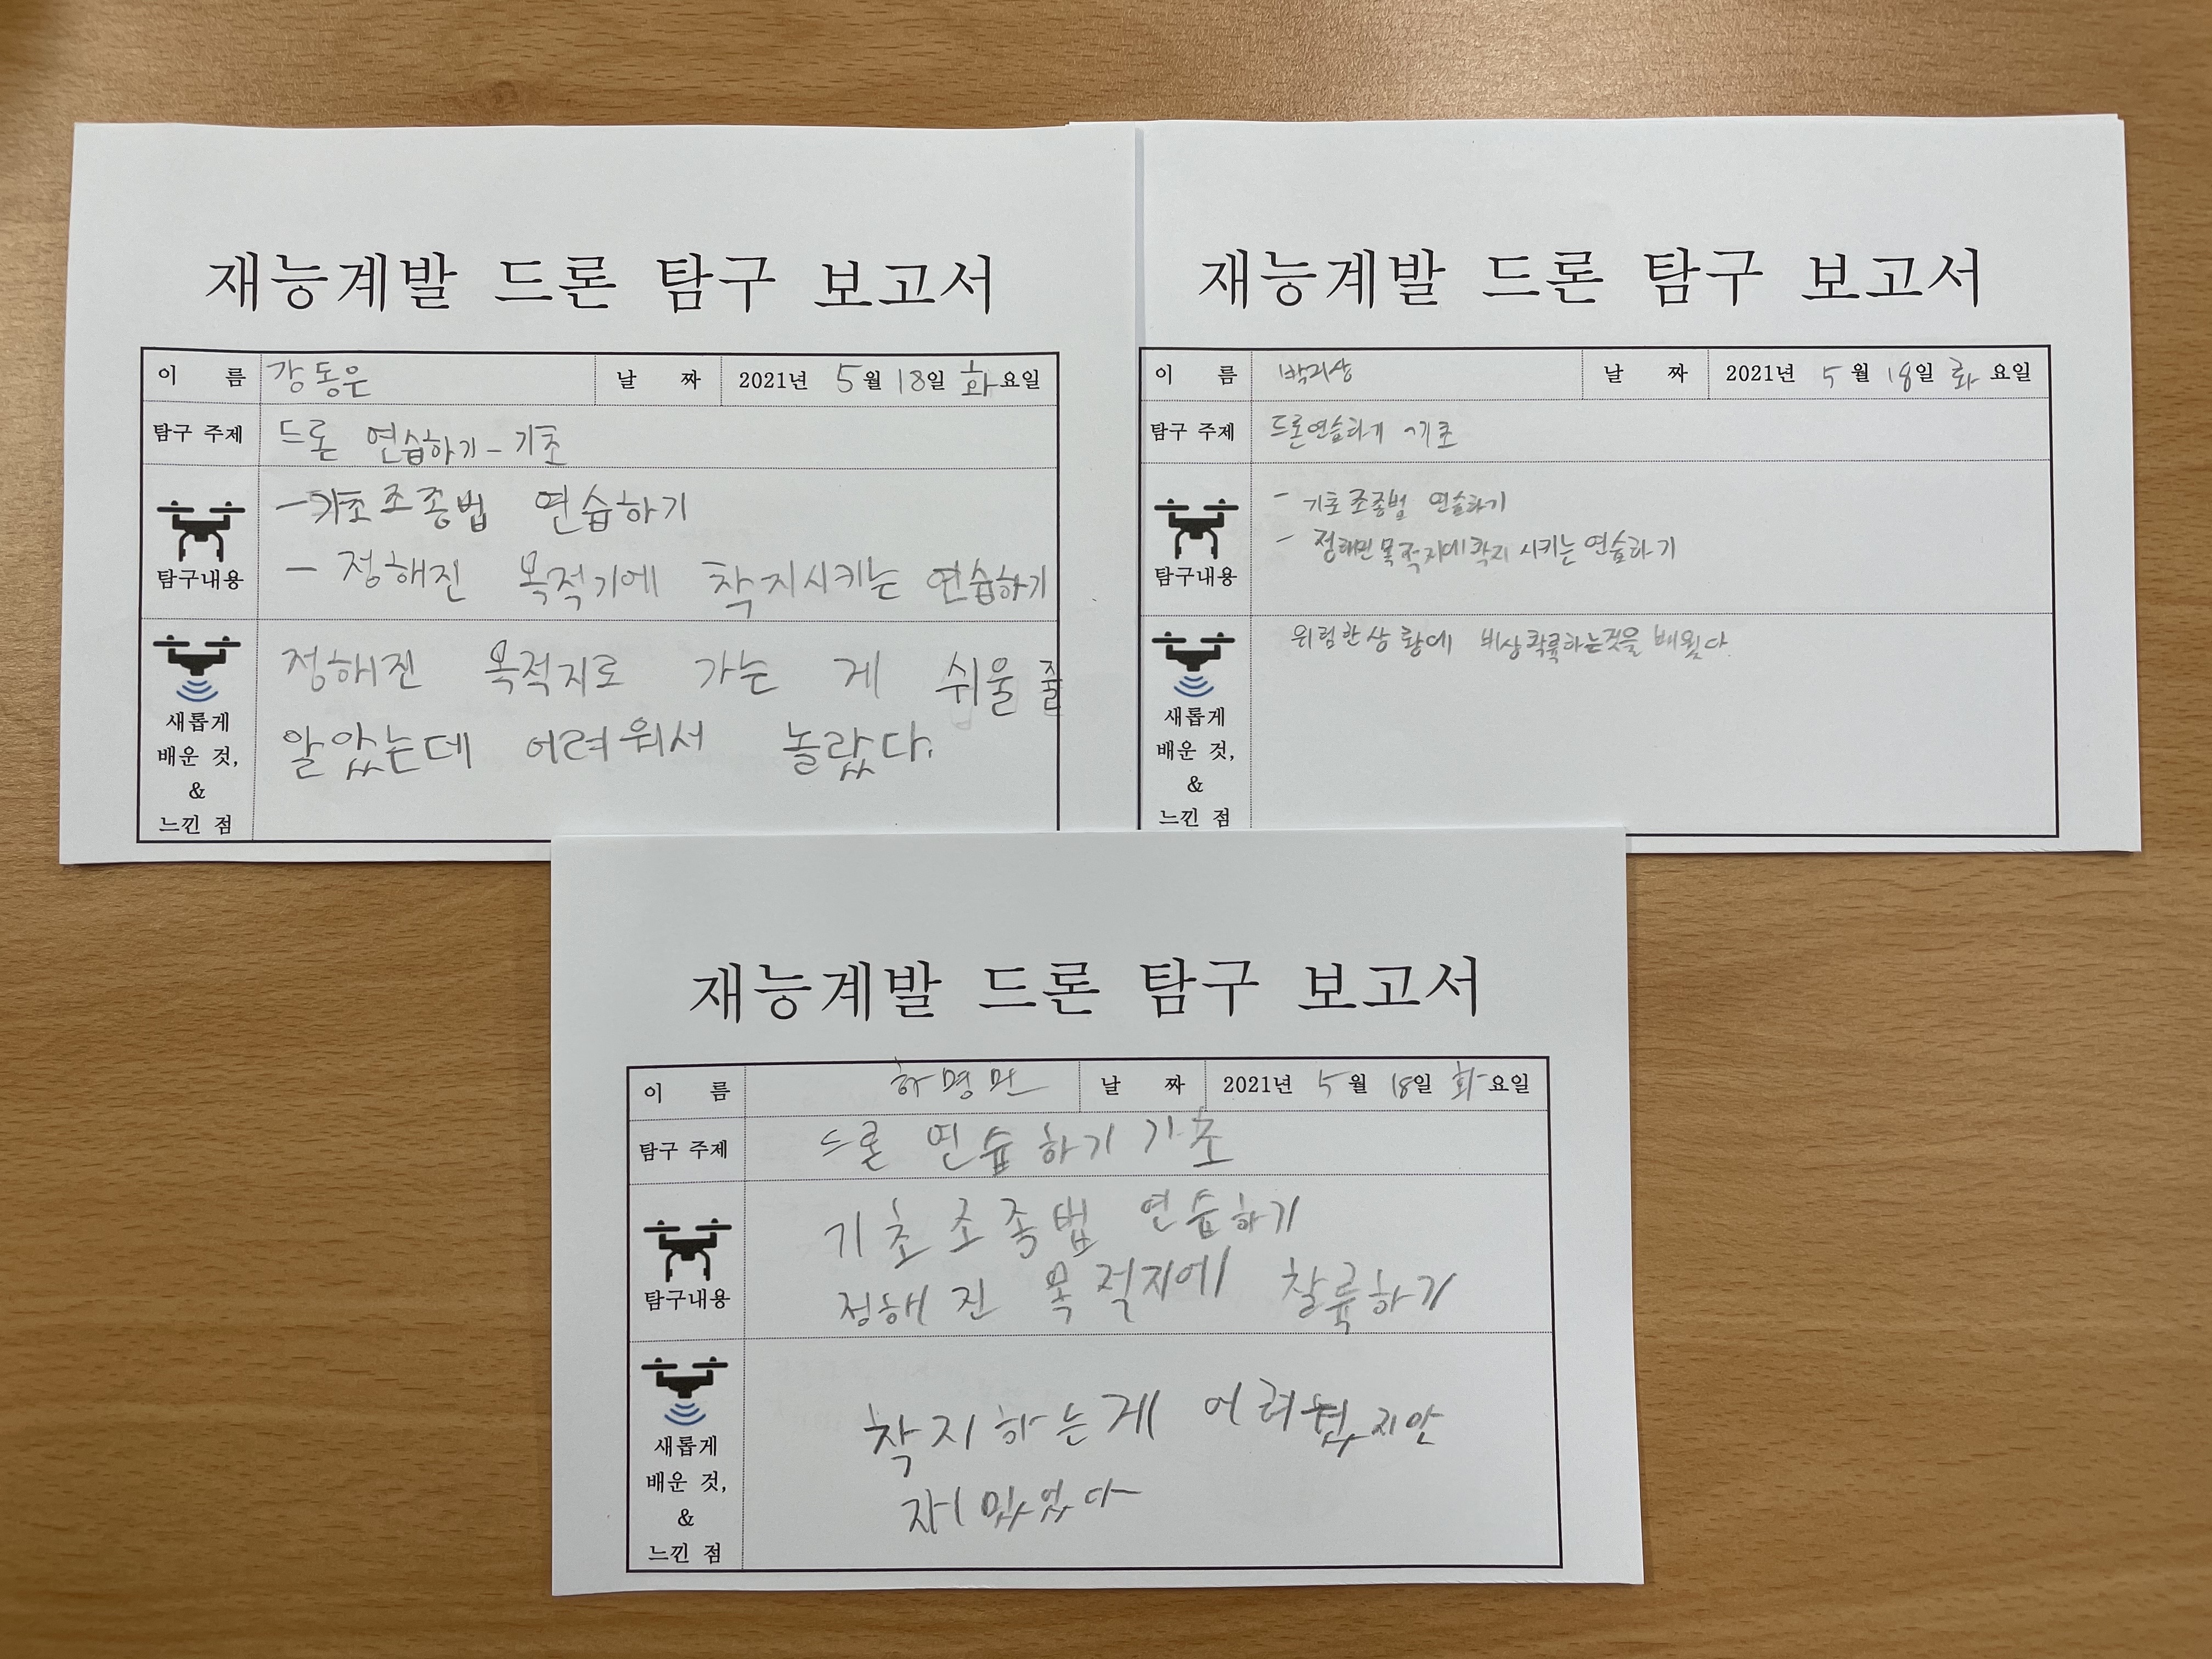 재능계발 드론 탐구 보고서
이 름 강동운 날 짜 2021년 5월 18일 화요일
탐구 주제 드론 연습하기 - 기초
탐구내용
- 기초조종법 연습하기
- 정해진 목적기에 착지시키는 연습하기
새롭게
배운 것,
&
느낀 점
정해진 목적지로 가는 게 쉬울 줄
알았는데 어려워서 놀랐다.
재능계발 드론 탐구 보고서
이 름 박지상 날 짜 2021년 5월 18일 화요일
탐구 주제 드론연습하기 -기초
탐구내용
- 기초조종법 연습하기
- 정해진목적지에착지 시키는연습하기
새롭게
배운 것,
&
느낀 점
위험한상황에 비상착륙하는것을 배웠다.
재능계발 드론 탐구 보고서
이 름 하명민 날 짜 2021년 5월 18일 화요일
탐구 주제 드론 연습하기 기초
탐구내용
기초조족법 연습하기
정해진 목적지에 찰륙하기
새롭게
배운 것,
&
느낀 점
착지하는게 지만
재밌었다